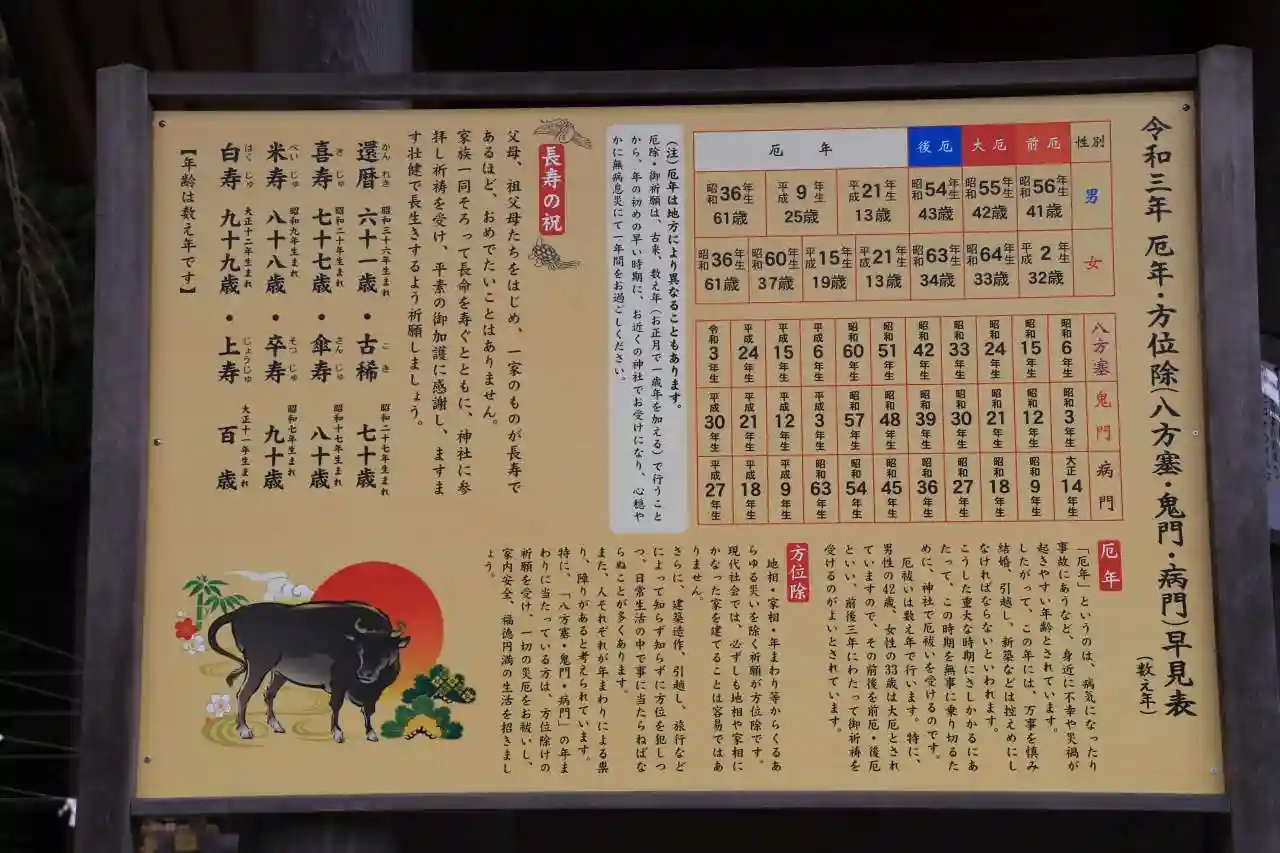 令和三年 厄年・方位除(八方塞・鬼門・病門)早見表
(数え年)
性別 前厄 大厄 後厄 厄年
男 昭和56年生 41歳 昭和55年生 42歳 昭和54年生 43歳 平成21年生 13歳 平成9年生 25歳 昭和36年生 61歳
女 平成2年生 32歳 昭和64年生 33歳 昭和63年生 34歳 平成21年生 13歳 平成15年生 19歳 昭和60年生 37歳 昭和36年生 61歳
八方塞 昭和6年生 昭和15年生 昭和24年生 昭和33年生 昭和42年生 昭和51年生 昭和60年生 平成6年生 平成15年生 平成24年生 令和3年生
鬼門 昭和3年生 昭和12年生 昭和21年生 昭和30年生 昭和39年生 昭和48年生 昭和57年生 平成3年生 平成12年生 平成21年生 平成30年生
病門 大正14年生 昭和9年生 昭和18年生 昭和27年生 昭和36年生 昭和45年生 昭和54年生 昭和63年生 平成9年生 平成18年生 平成27年生
(注)厄年は地方により異なることもあります。
厄除・御祈願は、古来、数え年(お正月で一歳年を加える)で行うこと
から、年の初めの早い時期に、お近くの神社でお受けになり、心穏や
かに無病息災にて一年間をお過ごしください。
長寿の祝
父母、祖父母たちをはじめ、一家のものが長寿で
あるほど、おめでたいことはありません。
家族一同そろって長命を寿ぐとともに、神社に参
拝し祈祷を受け、平素の御加護に感謝し、ますま
す壮健で長生きするよう祈願しましょう。
還暦 かんれき 昭和三十六年生まれ 六十一歳・古稀 こき 昭和二十七年生まれ 七十歳
喜寿 きじゅ 昭和二十年生まれ 七十七歳・傘寿 さんじゅ 昭和十七年生まれ 八十歳
米寿 べいじゅ 昭和九年生まれ 八十八歳・卒寿 そつじゅ 昭和七年生まれ 九十歳
白寿 はくじゅ 大正十二年生まれ 九十九歳・上寿 じょうじゅ 大正十一年生まれ 百歳
【年齢は数え年です】
厄年
「厄年」というのは、病気になったり
事故にあうなど、身近に不幸や災禍が
起きやすい年齢とされています。
したがって、この年には、万事を慎み
結婚、引越し、新築などは控えめにし
なければならないといわれます。
こうした重大な時期にさしかかるにあ
たって、この時期を無事に乗り切るた
めに、神社で厄祓いを受けるのです。
厄祓いは数え年で行います。特に、
男性の42歳、女性の33歳は大厄とされ
ていますので、その前後を前厄・後厄
といい、前後三年にわたって御祈祷を
受けるのがよいとされています。
方位除
地相・家相・年まわり等からくるあ
らゆる災いを除く祈願が方位除です。
現代社会では、必ずしも地相や家相に
かなった家を建てることは容易ではあ
りません。
さらに、建築造作、引越し、旅行など
によって知らず知らずに方位を犯しつ
つ、日常生活の中で事に当たらねばな
らぬことが多くあります。
また、人それぞれが年まわりによる祟
り、障りがあると考えられています。
特に、「八方塞・鬼門・病門」の年ま
わりに当たっている方は、方位除けの
祈願を受け、一切の災厄をお祓いし、
家内安全、福徳円満の生活を招きまし
ょう。